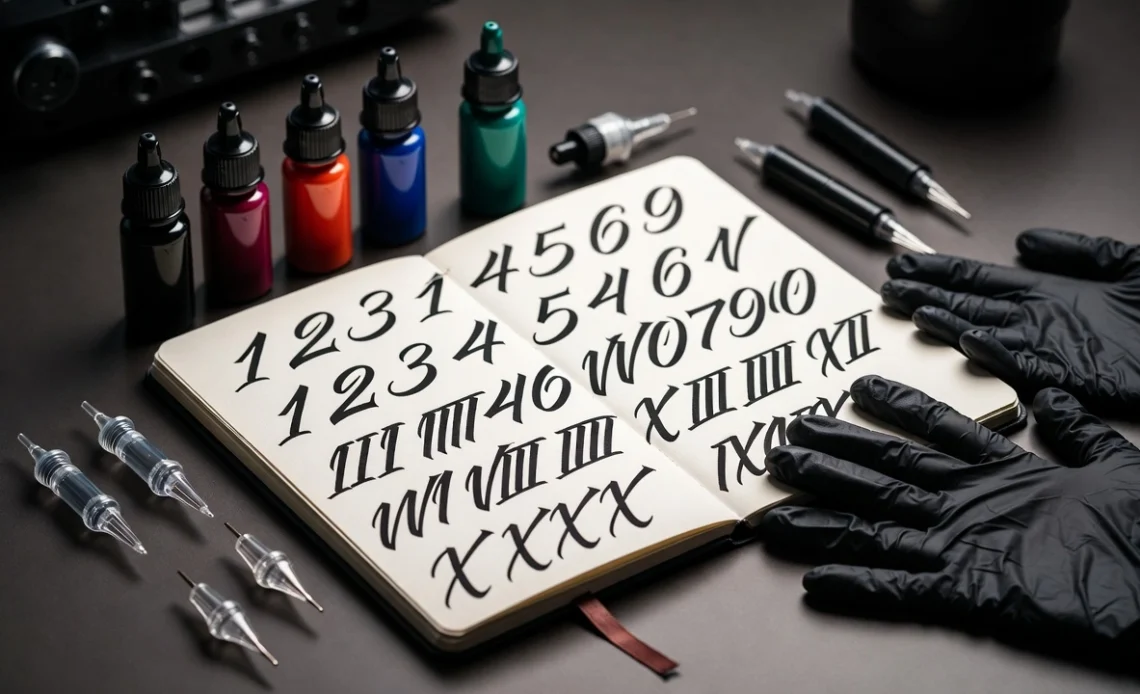 1 2 3 1
1 2 3 4
III IIII 46
WI VIII IIII
XXXX
4 5 6 9
5 4 6 N
W0790
X III IIII XII